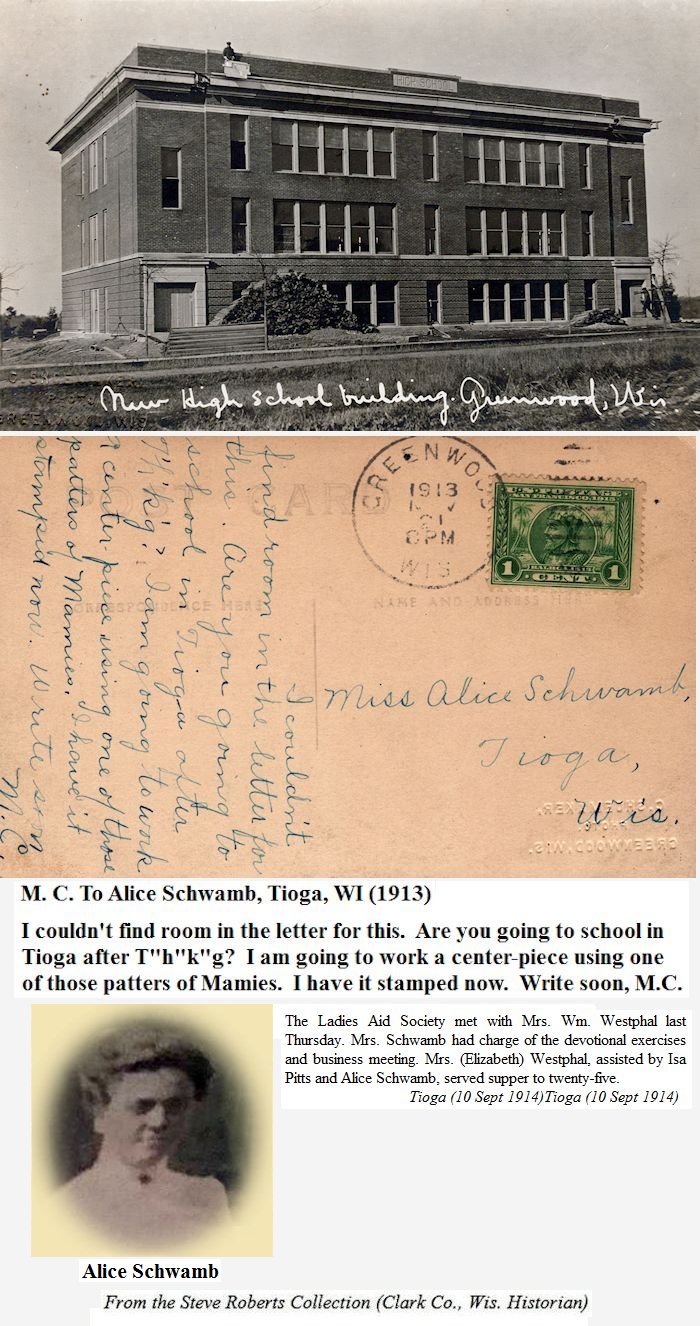 HIGH SCHOOL
New High school building. Greenwood, Wis.
POST CARD
GREENWOOD
1913
NOV
21
8PM
WIS.
U.S. POSTAGE
SAN FRANCISCO 1915
BALBOA 1513
1 CENT 1
CORRESPONDENCE HERE
NAME AND ADDRESS HERE
I couldn't
find room in the letter for
this. Are you going to
school in Tioga after
Th'k'g? I am going to work
a center-piece using one of those
patters of Mamies. I have it
stamped now. Write soon
M.C.
Miss Alice Schwamb,
Tioga,
Wis.
GREENWOOD, WIS.
M. C. To Alice Schwamb, Tioga, WI (1913)
I couldn't find room in the letter for this.  Are you going to school in
Tioga after T"h"k"g?  I am going to work a center-piece using one
of those patters of Mamies.  I have it stamped now.  Write soon, M.C.
The Ladies Aid Society met with Mrs. Wm. Westphal last
Thursday. Mrs. Schwamb had charge of the devotional exercises
and business meeting. Mrs. (Elizabeth) Westphal, assisted by Isa
Pitts and Alice Schwamb, served supper to twenty-five.
Tioga (10 Sept 1914)Tioga (10 Sept 1914)
Alice Schwamb
From the Steve Roberts Collection (Clark Co., Wis. Historian)